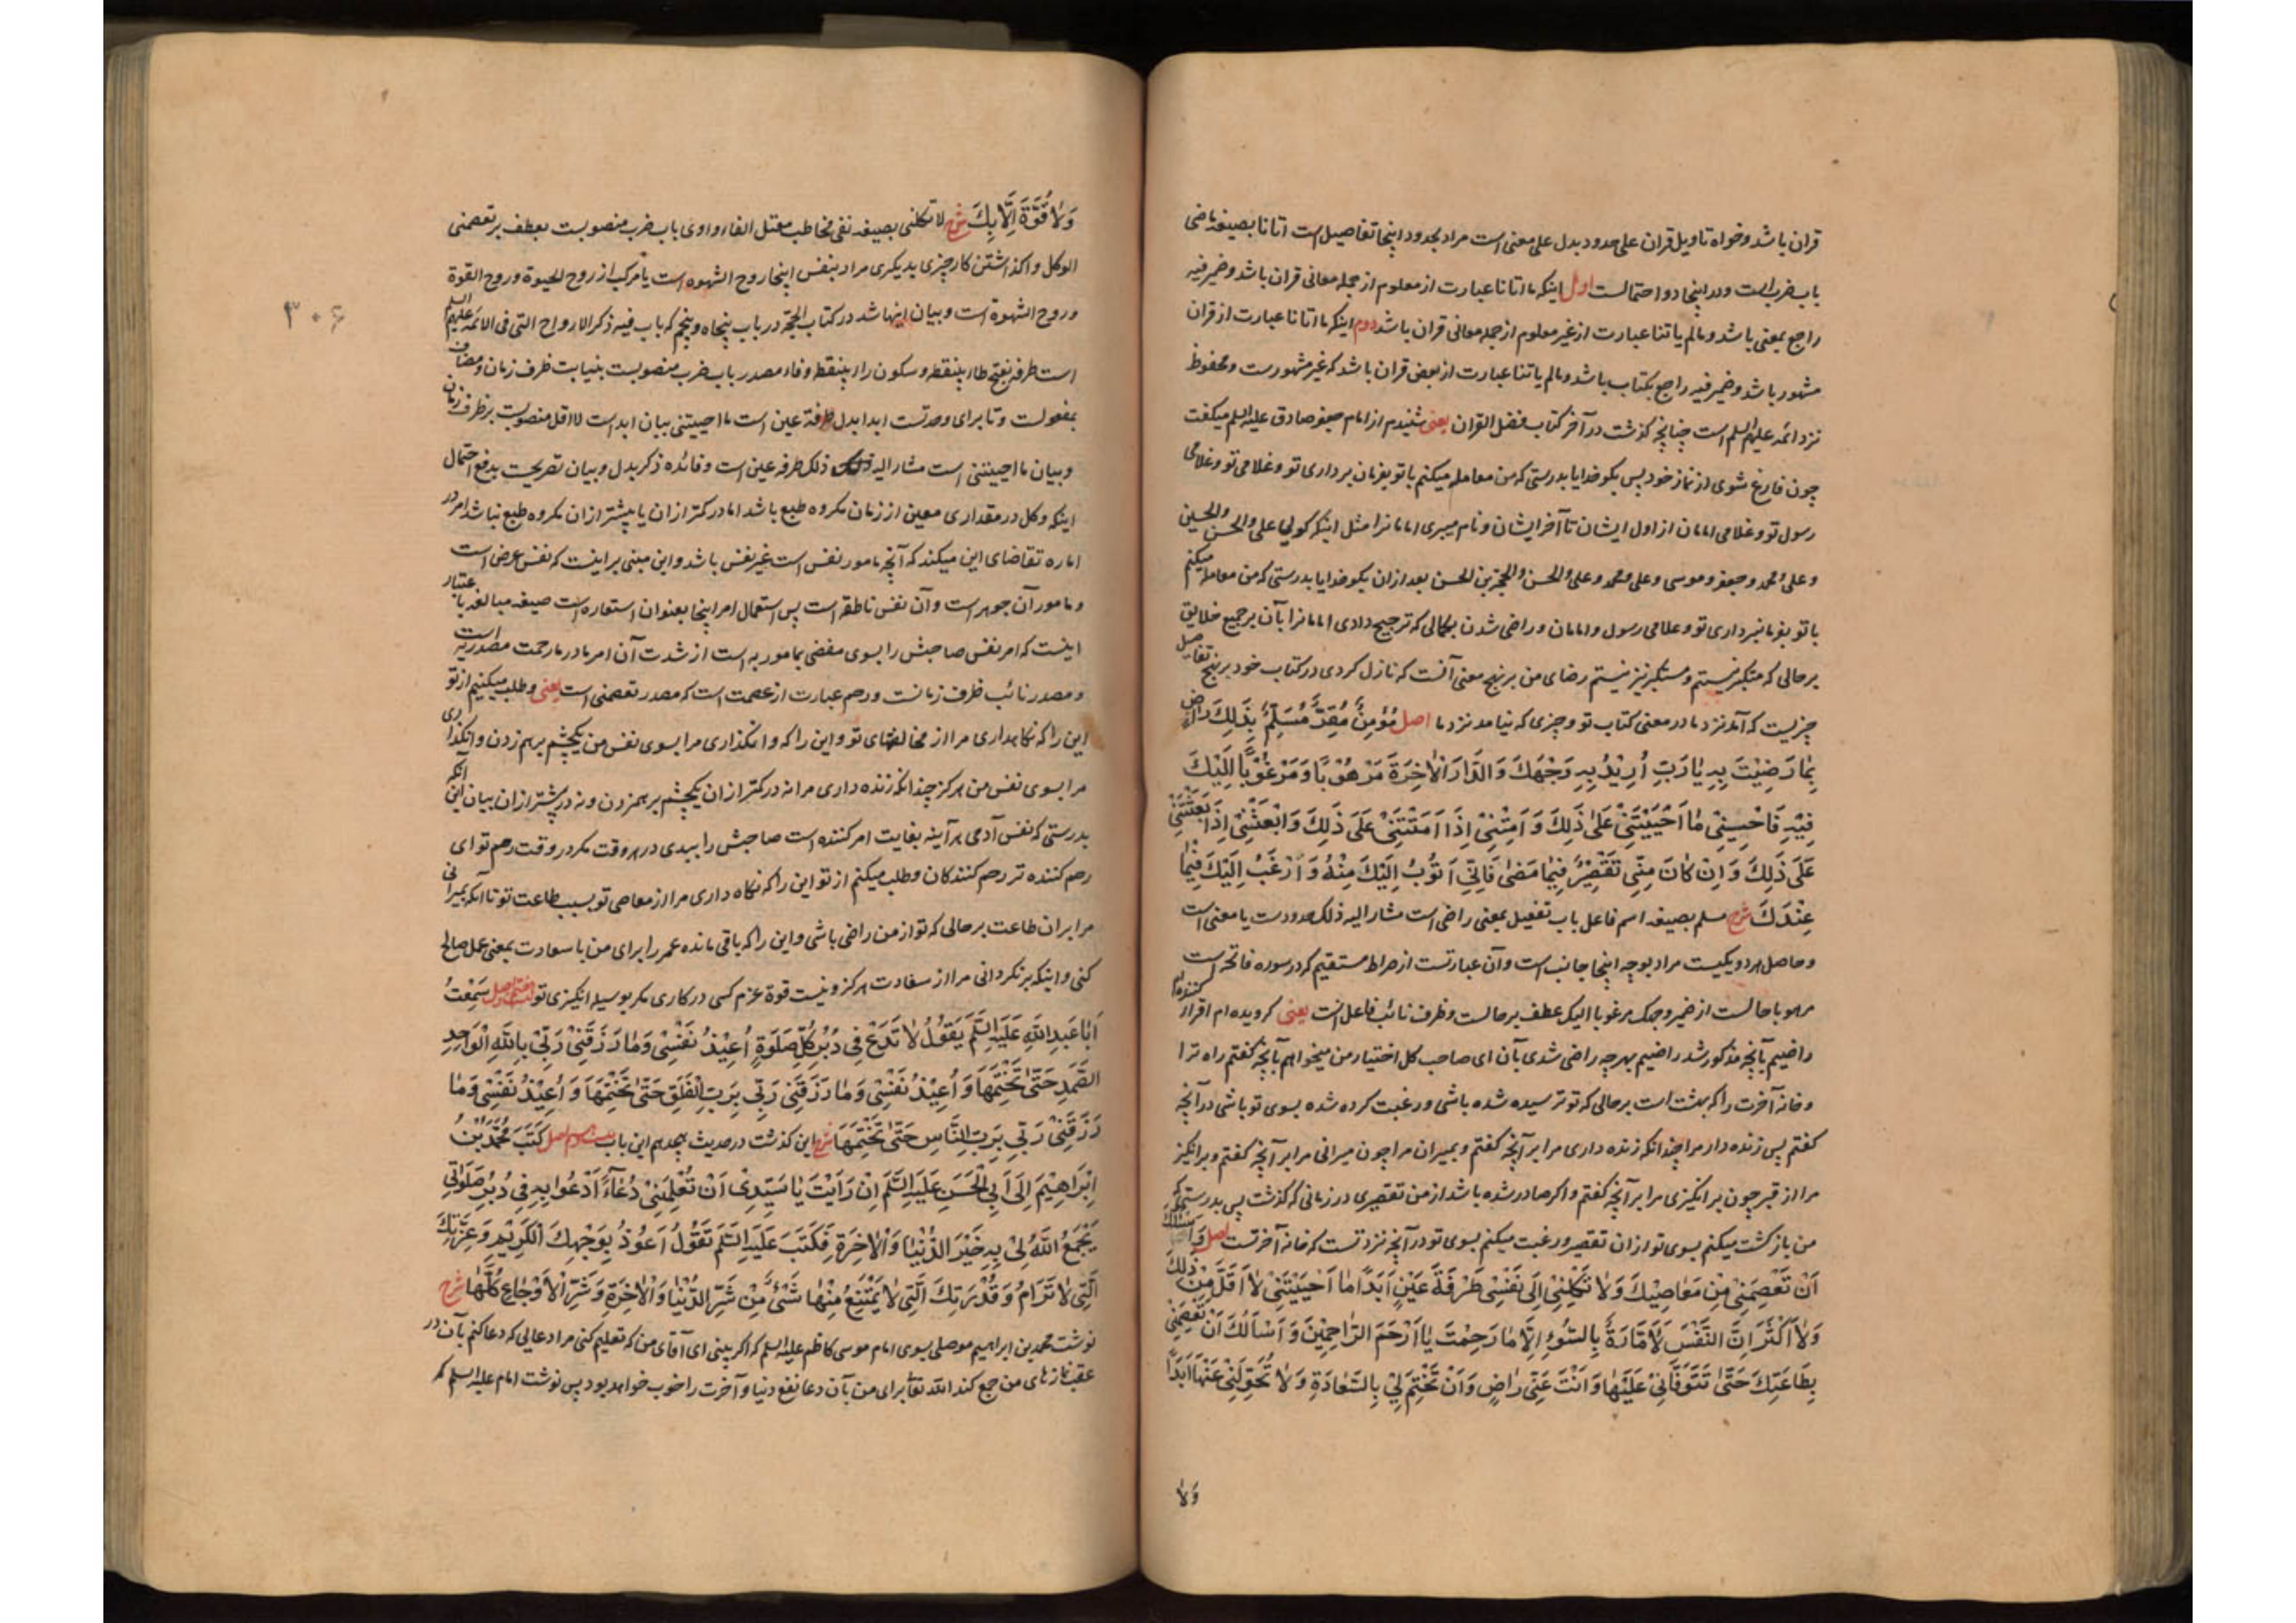 قران باشد وخواه تاویل قران علی حدود بدل علی معنی است مراد بحدود اینجا تفاصیل است اتانا بصیغه ماضی
باب ضرب است ودر اینجا دو احتمالست اول اینکه ما اتانا عبارت از معلوم از جمله معانی قران باشد وضمیر فیه
راجع بمعنی باشد ومالم یاتنا عبارت از غیر معلوم از جمله معانی قران باشد دوم اینکه ما اتانا عبارت از قران
مشهور باشد وضمیر فیه راجع بکتاب باشد ومالم یاتنا عبارت از بعض قران باشد که غیر مشهورست ومحفوظ
نزد ائمه علیهم السلم است چنانچه گذشت در آخر کتاب فضل القران یعنی شنیدم از امام جعفر صادق علیه السلم میکفت
چون فارغ شوی از نماز خود پس بکو خدایا بدرستی که من معامله میکنم با تو بفرمان برداری تو وغلامی تو وغلامی
رسول تو وغلامی امامان از اول ایشان تا آخر ایشان ونام میبری امامانرا مثل اینکه کویی علی والحسن والحسین
وعلی ومحمد وجعفر وموسی وعلی ومحمد وعلی والحسن والحجة بن الحسن بعد ازان بکو خدایا بدرستی که من معامله میکنم
با تو بفرمانبرداری تو وغلامی رسول وامامان وراضی شدن بکمالی که ترجیح دادی امامانرا بآن بر جمیع خلایق
بر حالی که متکبر نیستم ومستکبر نیز نیستم رضای من بر نهج معنی آنست که نازل کردی در کتاب خود بر نهج تفاصیل
چیزیست که آمد نزد ما در معنی کتاب تو وچیزی که نیامد نزد ما اصل مُؤْمِنٌ مُقِرٌّ مُسَلِّمٌ بِذَلِكَ رَاضٍ
بِمَا رَضِيتَ بِهِ يَا رَبِّ أُرِيدُ بِهِ وَجْهَكَ وَالدَّارَ الْآخِرَةَ مَرْهُوبًا وَمَرْغُوبًا إِلَيْكَ
فِيهِ فَأَحْيِنِي مَا أَحْيَيْتَنِي عَلَى ذَلِكَ وَأَمِتْنِي إِذَا أَمَتَّنِي عَلَى ذَلِكَ وَابْعَثْنِي إِذَا بَعَثْتَنِي
عَلَى ذَلِكَ وَإِنْ كَانَ مِنِّي تَقْصِيرٌ فِيمَا مَضَى فَإِنِّي أَتُوبُ إِلَيْكَ مِنْهُ وَأَرْغَبُ إِلَيْكَ فِيمَا
عِنْدَكَ شرح مسلم بصیغه اسم فاعل باب تفعیل بمعنی راضی است مشار الیه ذلک حدودست یا معنی است
وحاصل هر دو یکیست مراد بوجه اینجا جانب است وآن عبارتست از صراط مستقیم که در سوره فاتحه است
مرهوبا حالست از ضمیر وجهک مرغوبا الیک عطف بر حالست وظرف نائب فاعل است یعنی کرویده ام اقرار کننده ام
راضیم بآنچه مذکور شد راضیم بهرچه راضی شدی بآن ای صاحب کل اختیار من میخواهم بآنچه کفتم راه ترا
وخانه آخرت را که بهشت است بر حالی که تو ترسیده شده باشی ورغبت کرده شده بسوی تو باشی در آنچه
کفتم پس زنده دار مرا چندانکه زنده داری مرا بر آنچه کفتم وبمیران مرا چون میرانی مرا بر آنچه کفتم وبرانکیز
مرا از قبر چون برانکیزی مرا بر آنچه کفتم واکر صادر شده باشد از من تقصیری در زمانی که گذشت پس بدرستی که
من بازکشت میکنم بسوی تو ازان تقصیر ورغبت میکنم بسوی تو در آنچه نزد تست که خانه آخرتست اصل وَأَسْأَلُكَ
أَنْ تَعْصِمَنِي مِنْ مَعَاصِيكَ وَلَا تَكِلْنِي إِلَى نَفْسِي طَرْفَةَ عَيْنٍ أَبَدًا مَا أَحْيَيْتَنِي لَا أَقَلَّ مِنْ ذَلِكَ
وَلَا أَكْثَرَ إِنَّ النَّفْسَ لَأَمَّارَةٌ بِالسُّوءِ إِلَّا مَا رَحِمْتَ يَا أَرْحَمَ الرَّاحِمِينَ وَأَسْأَلُكَ أَنْ تَعْصِمَنِي
بِطَاعَتِكَ حَتَّى تَتَوَفَّانِي عَلَيْهَا وَأَنْتَ عَنِّي رَاضٍ وَأَنْ تَخْتِمَ لِي بِالسَّعَادَةِ وَلَا تُحَوِّلَنِي عَنْهَا أَبَدًا
وَلَا
۳۰۶
وَلَا قُوَّةَ إِلَّا بِكَ شرح لا تکلنی بصیغه نفی مخاطب معتل الفاء واوی باب ضرب منصوبست بعطف بر تعصمنی
الوکل واکذاشتن کار چیزی بدیکری مراد بنفس اینجا روح الشهوه است یا مرکب از روح الحیوة وروح القوة
وروح الشهوة است وبیان اینها شد در کتاب الحجة در باب پنجاه وپنجم که باب فیه ذکر الارواح التی فی الائمه علیهم السلم
است طرفه بفتح طاء بینقطه وسکون راء بینقطه وفاء مصدر باب ضرب منصوبست بنیابت ظرف زمان ومضاف
بمفعولست وتا برای وحدتست ابدا بدل طرفة عین است ما احییتنی بیان ابد است لا اقل منصوبست بر ظرف زمان
وبیان ما احییتنی است مشار الیه ذلک طرفه عین است وفائده ذکر بدل وبیان تصریحست بدفع احتمال
اینکه وکل در مقداری معین از زمان مکروه طبع باشد اما در کمتر ازان یا بیشتر ازان مکروه طبع نباشد امر در
اماره تقاضای این میکند که آنچه مامور نفس است غیر نفس باشد واین مبنی بر اینست که نفس عرض است
ومامور آن جوهر است وآن نفس ناطقه است پس استعمال امر اینجا بعنوان استعاره است صیغه مبالغه باعتبار
اینست که امر نفس صاحبش را بسوی مفضی بمامور به است از شدت آن امر ما در ما رحمت مصدریه است
ومصدر نائب ظرف زمانست ورحم عبارت از عصمت است که مصدر تعصمنی است یعنی وطلب میکنیم از تو
این را که نکاهداری مرا از مخالفتهای تو واین را که وانکذاری مرا بسوی نفس من یکچشم برهم زدن وانکذاری
مرا بسوی نفس من هرکز چندانکه زنده داری مرا نه در کمتر ازان یکچشم برهمزدن ونه در بیشتر ازان بیان این آنکه
بدرستی که نفس آدمی هرآینه بغایت امر کننده است صاحبش را ببدی در هر وقت مکر در وقت رحم تو ای
رحم کننده تر رحم کنندکان وطلب میکنم از تو این را که نکاه داری مرا از معاصی تو بسبب طاعت تو تا آنکه بمیرانی
مرا بران طاعت بر حالی که تو از من راضی باشی واین را که باقی مانده عمر را برای من با سعادت بمعنی عمل صالح
کنی واینکه برنکردانی مرا از سعادت هرکز ونیست قوة عزم کسی در کاری مکر بوسیله انکیزی تو اصل سَمِعْتُ
أَبَا عَبْدِ اللَّهِ عَلَيْهِ السَّلَمُ يَقُولُ لَا تَدَعْ فِي دُبُرِ كُلِّ صَلَوةٍ أُعِيذُ نَفْسِي وَمَا رَزَقَنِي رَبِّي بِاللَّهِ الْوَاحِدِ
الصَّمَدِ حَتَّى تَخْتِمَهَا وَأُعِيذُ نَفْسِي وَمَا رَزَقَنِي رَبِّي بِرَبِّ الْفَلَقِ حَتَّى تَخْتِمَهَا وَأُعِيذُ نَفْسِي وَمَا
رَزَقَنِي رَبِّي بِرَبِّ النَّاسِ حَتَّى تَخْتِمَهَا شرح این گذشت در حدیث هجدهم این باب اصل كَتَبَ مُحَمَّدُ بْنُ
إِبْرَاهِيمَ إِلَى أَبِي الْحَسَنِ عَلَيْهِ السَّلَمُ إِنْ رَأَيْتَ يَا سَيِّدِي أَنْ تُعَلِّمَنِي دُعَاءً أَدْعُوا بِهِ فِي دُبُرِ صَلَوَاتِي
يَجْمَعُ اللَّهُ لِي بِهِ خَيْرَ الدُّنْيَا وَالْآخِرَةِ فَكَتَبَ عَلَيْهِ السَّلَمُ تَقُولُ أَعُوذُ بِوَجْهِكَ الْكَرِيمِ وَعِزَّتِكَ
الَّتِي لَا تُرَامُ وَقُدْرَتِكَ الَّتِي لَا يَمْتَنِعُ مِنْهَا شَيْءٌ مِنْ شَرِّ الدُّنْيَا وَالْآخِرَةِ وَشَرِّ الْأَوْجَاعِ كُلِّهَا شرح
نوشت محمد بن ابراهیم موصلی بسوی امام موسی کاظم علیه السلم که اکر بینی ای آقای من که تعلیم کنی مرا دعایی که دعا کنم بآن در
عقب نمازهای من جمع کند الله تعالی برای من بآن دعا نفع دنیا وآخرت را خوب خواهد بود پس نوشت امام علیه السلم که